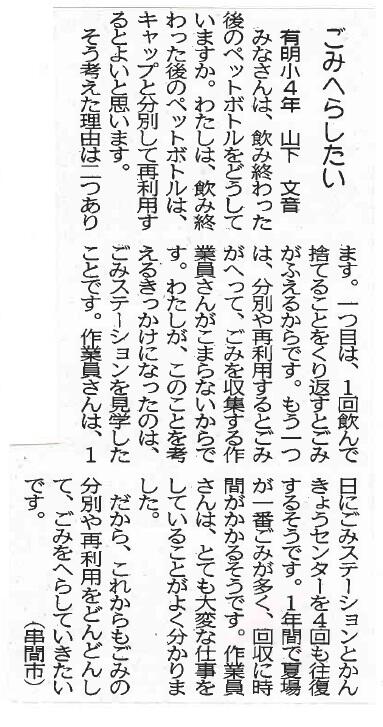 ごみへらしたい
有明小4年　山下　文音
　みなさんは、飲み終わった
後のペットボトルをどうして
いますか。わたしは、飲み終
わった後のペットボトルは、
キャップと分別して再利用す
るとよいと思います。
　そう考えた理由は二つあり
ます。一つ目は、1回飲んで
捨てることをくり返すとごみ
がふえるからです。もう一つ
は、分別や再利用するとごみ
がへって、ごみを収集する作
業員さんがこまらないからで
す。わたしが、このことを考
えるきっかけになったのは、
ごみステーションを見学した
ことです。作業員さんは、1
日にごみステーションとかん
きょうセンターを4回も往復
するそうです。1年間で夏場
が一番ごみが多く、回収に時
間がかかるそうです。作業員
さんは、とても大変な仕事を
していることがよく分かりま
した。
　だから、これからもごみの
分別や再利用をどんどんし
て、ごみをへらしていきたい
です。
（串間市）